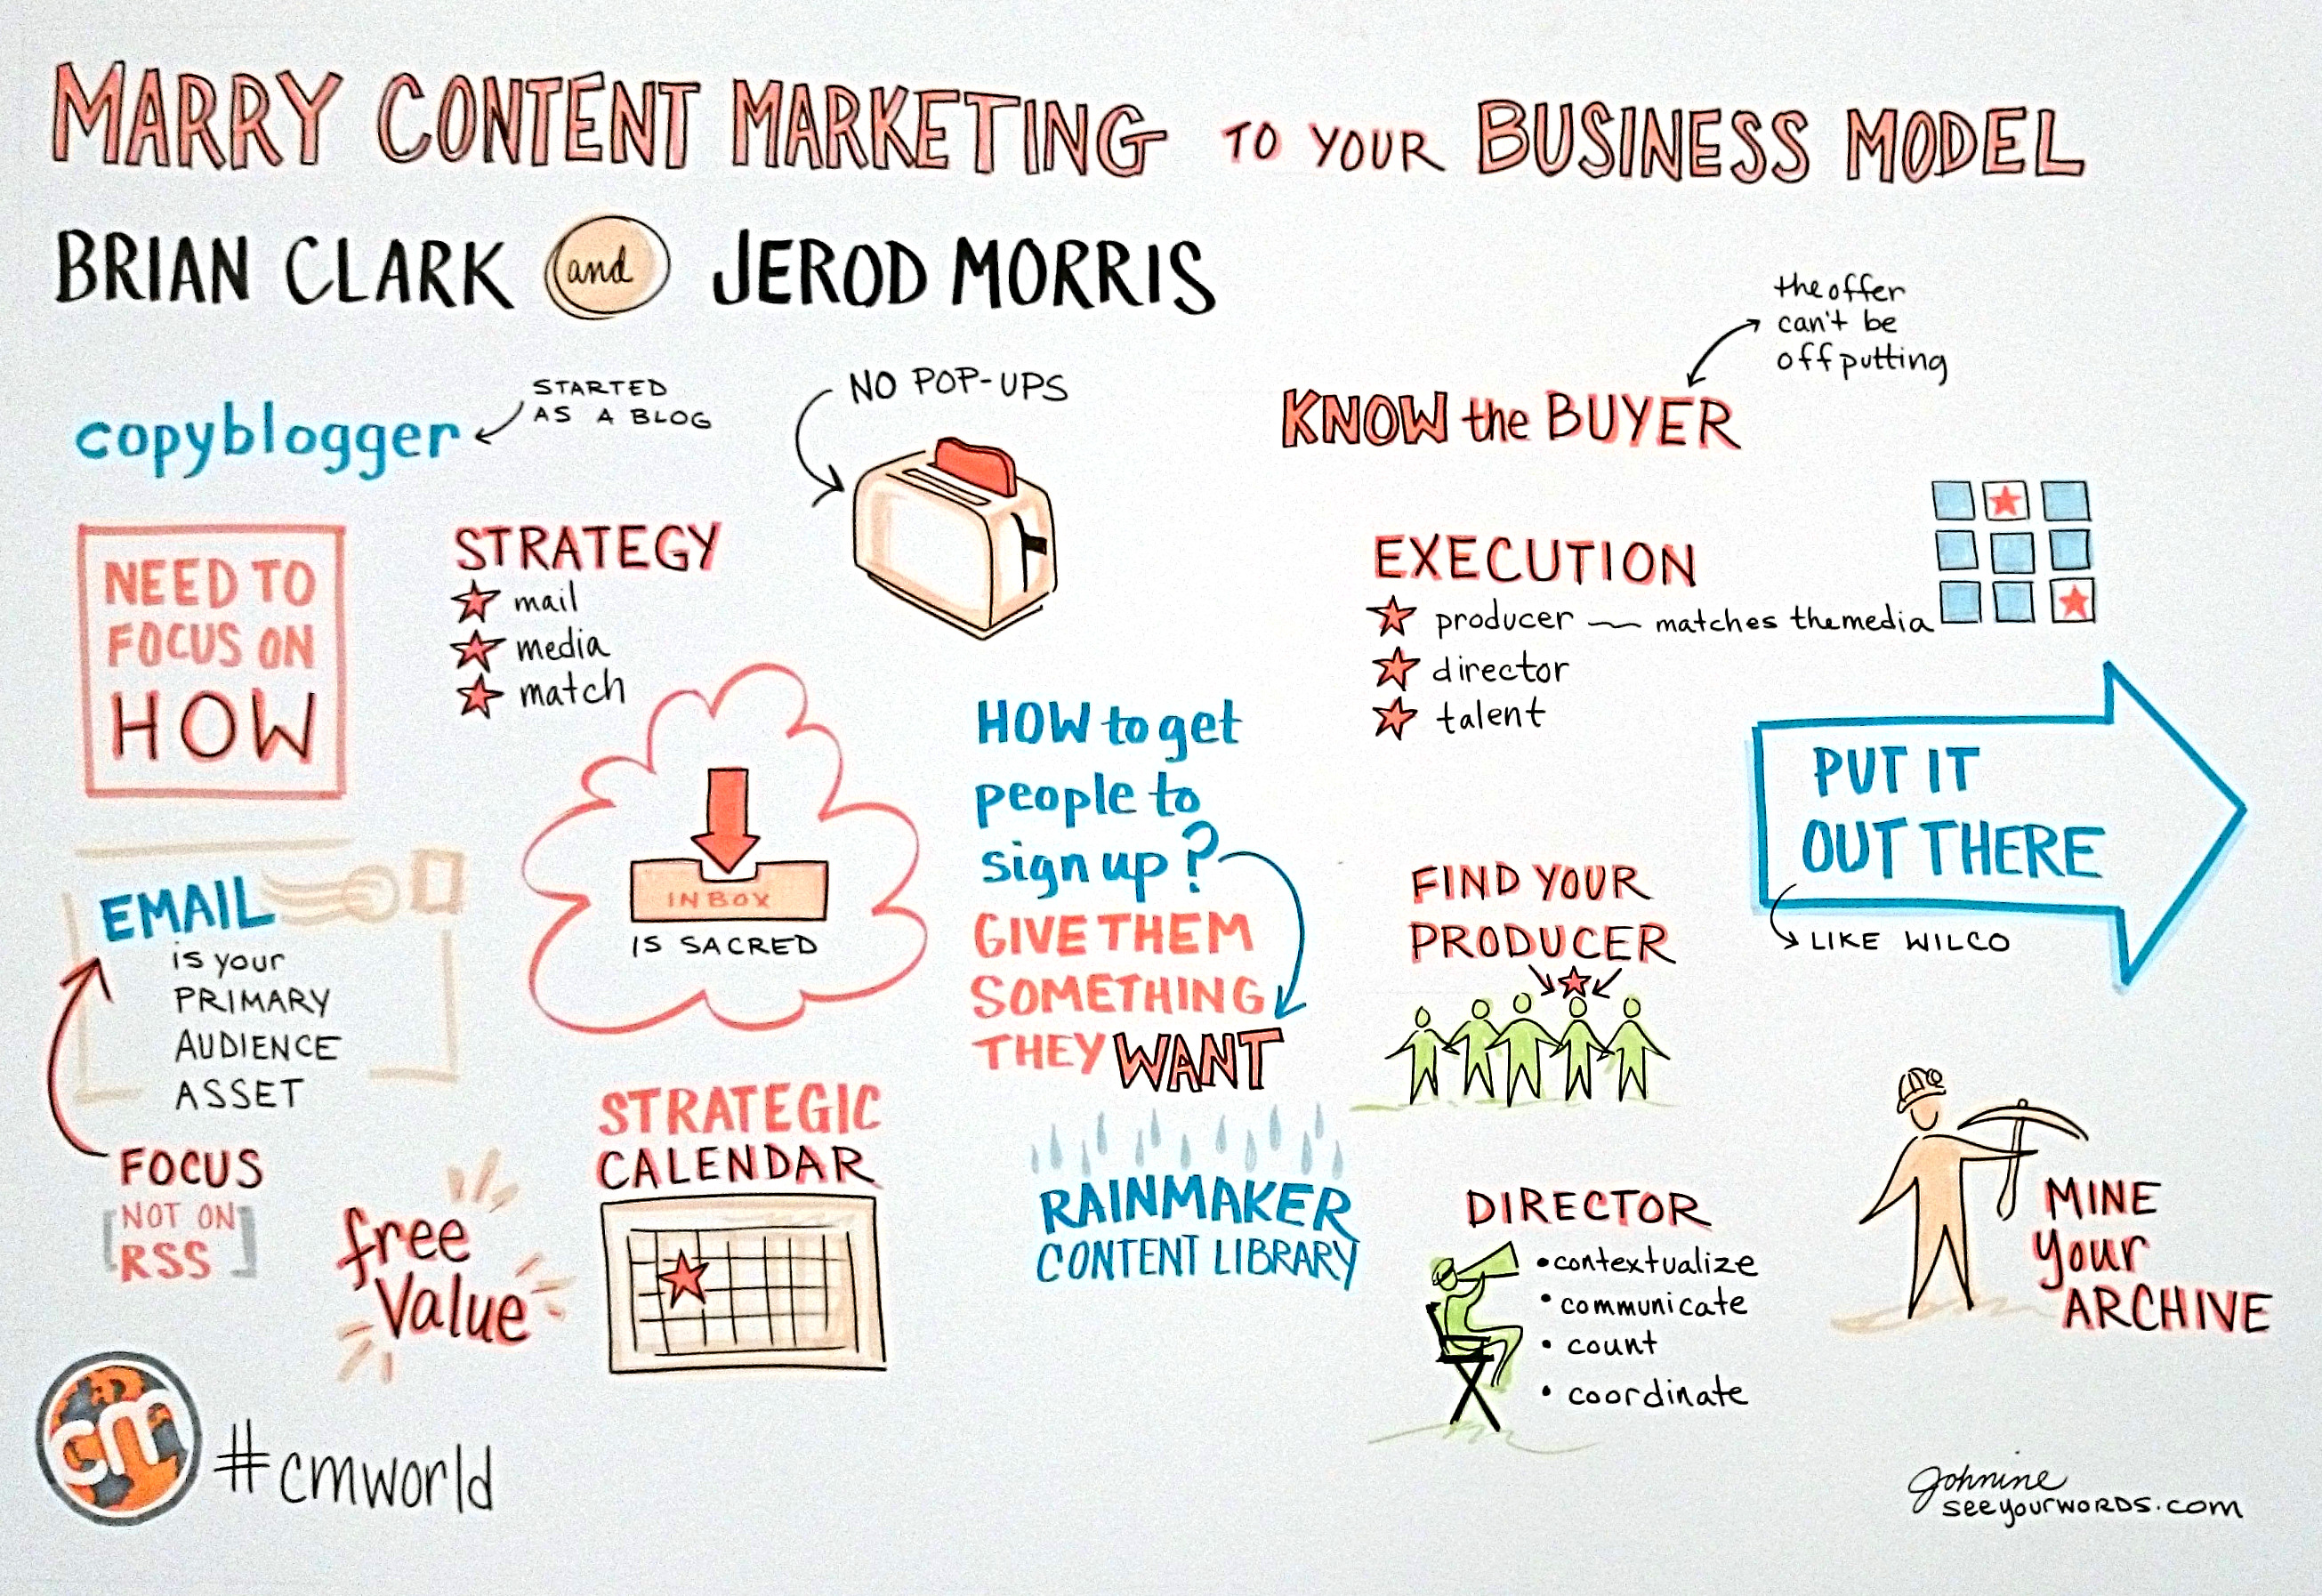 MARRY CONTENT MARKETING TO YOUR BUSINESS MODEL
BRIAN CLARK and JEROD MORRIS
copyblogger
STARTED
AS A BLOG
NO POP-UPS
the offer
can't be
offputting
KNOW the BUYER
NEED TO
FOCUS ON
HOW
STRATEGY
mail
media
match
EXECUTION
producer — matches the media
director
talent
INBOX
IS SACRED
HOW to get
people to
sign up?
GIVE THEM
SOMETHING
THEY WANT
PUT IT
OUT THERE
LIKE WILCO
EMAIL
is your
PRIMARY
AUDIENCE
ASSET
FOCUS
[NOT ON
RSS]
free
Value
STRATEGIC
CALENDAR
RAINMAKER
CONTENT LIBRARY
FIND YOUR
PRODUCER
DIRECTOR
• contextualize
• communicate
• count
• coordinate
MINE
your
ARCHIVE
cm
#cmworld
Johnine
seeyourwords.com